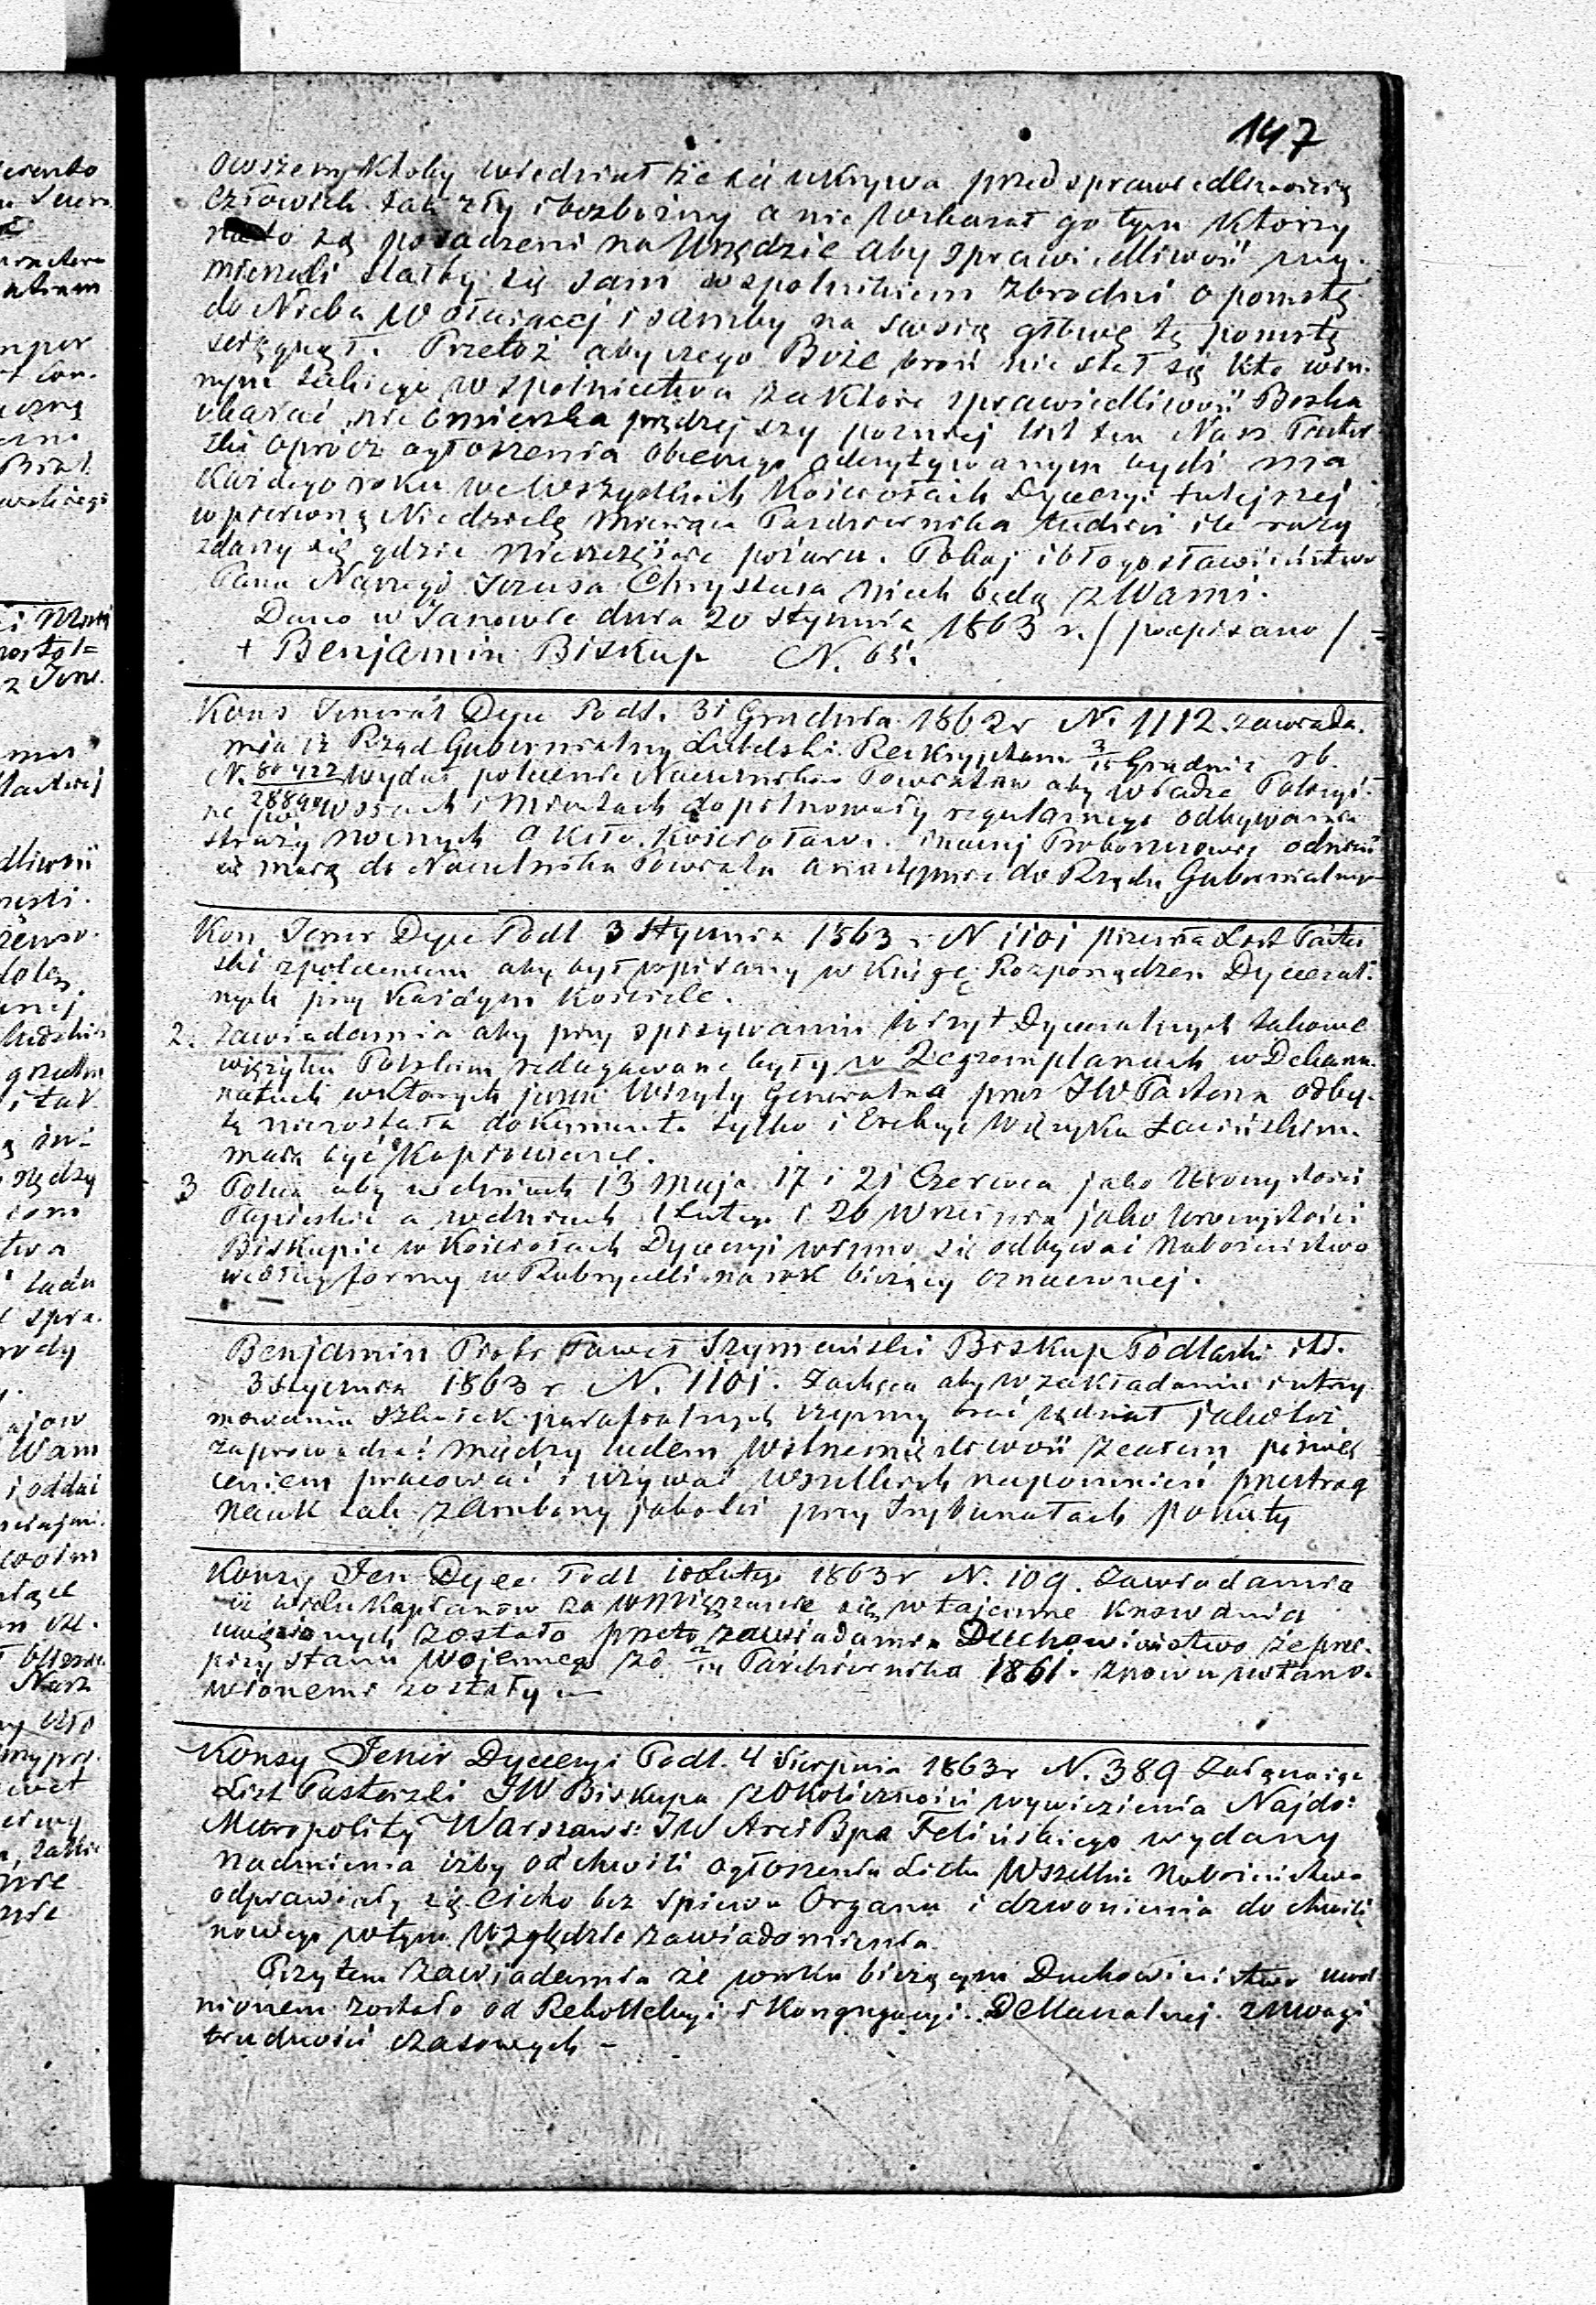 147
owszem ktoby wiedział że się ukrywa przed sprawiedliwością
człowiek tak zły i bezbożny a nie wskazał go tym którzy
na to są posadzeni na Urzędzie aby sprawiedliwość wy-
mierzali stałby się sam wspolnikiem zbrodni o pomstę
do Nieba wołającej i samby na swoią głowę tę pomstę
sciągnął. Przetoż aby czego Boże broń nie stał się kto win-
nym takiego wspolnictwa za które sprawiedliwość Boska
ukarać nie omieszka prędzej czy pozniej list ten Nasz Paster
ski oprócz ogłoszenia obecnego odczytywanym bydź ma
Każdego roku we wszystkich Kościołach Dyecezyi tutejszej
w pierwszą Niedzielę Miesiąca Pazdziernika tudzież ile razy
zdarzy się gdzie nieszczęście pożaru. Pokoj i błogosławieństwo
Pana Naszego Jezusa Chrystusa niech będą z Wami.
Dano w Janowie dnia 20 Stycznia 1863 r. / podpisano /
+ Benjamin Biskup N. 65.
Kons Jeneral Dyec Podl. 31 Grudnia 1862 r N. 1112. zawiada.
mia iż Rząd Gubernialny Lubelski Reskryptem 3/15 Grudnia rb.
N. 80422/28890 wydał polecenie Naczelnikom Powiatów aby władze Policyj-
ne po wsiach i Miastach dopilnowały regularnego odbywania
straży nocnych około Kościołów. inaczej Proboszczowie odnosić
się mają do Naczelnika Powiatu a następnie do Rządu Gubernialnego
Kon Jener Dyec Podl 3 Stycznia 1863 r N 1101 przesyła List Paster
ski z poleceniem aby był wpisany w Księgę Rozporządzeń Dyecezal-
nych przy Każdym Kosciele.
2. Zawiadamia aby przy spisywaniu Wizyt Dyecezalnych takowe
w języku Polskim redagowane były w 2 egzemplarzach w Dekana-
natach w których jeszcze Wizyta Generalna przez JW. Pasterza odby-
tą nie została dokumenta tylko i Erekcye w języku Łacińskim
mają być Kopiowane.
3 Poleca aby w dniach 13 Maja 17 i 21 Czerwca jako Uroczystości
Papieskie a w dniach 1 Lutego i 26 Września jako Uroczystości
Biskupie w Kosciołach Dyecezyi winno się odbywać Nabożeństwo
według formy w Rubrycelli na rok bieżący oznaczonej.
Benjamin Piotr Paweł Szymański Biskup Podlaski itd.
3 Stycznia 1863 r N. 1101. Zachęca aby w zakładaniu i utrzy
mowaniu szkołek parafialnych czynny brać udział jakoteż
zaprowadzać między ludem wstrzemięźliwość z całem poświę
ceniem pracować i używać wszelkich napomnień przestrog
nauk tak z Ambony jakoteż przy Trybunałach pokuty
Konsy Jen Dyec. Podl 10 Lutego 1863 r N. 109. Zawiadamia
iż wielu Kapłanów za wmięszanie się w tajemne knowania
uwięzionych zostało przeto zawiadamia Duchowieństwo że prze-
pisy stanu wojennego z d 2/14 Pazdziernika 1861. znowu ustano-
wionemi zostały
Konsy Jener Dyecezyi Podl. 4 Sierpnia 1863 r N. 389 Załączając
List Pasterski JW Biskupa z okoliczności wywiezienia Najdo:
Metropolity Warszaws: JW ArciBpa Felińskiego wydany
nadmienia iżby od chwili ogłoszenia Listu wszelkie Nabożeństwa
odprawiały się cicho bez śpiewu Organu i dzwonienia do chwili
nowego w tym względzie zawiadomienia.
Przytem zawiadamia że w roku bieżącym Duchowieństwo uwol
nionem zostało od Rekollekcyi i Kongregacyi Dekanalnej z uwagi
trudności czasowych –